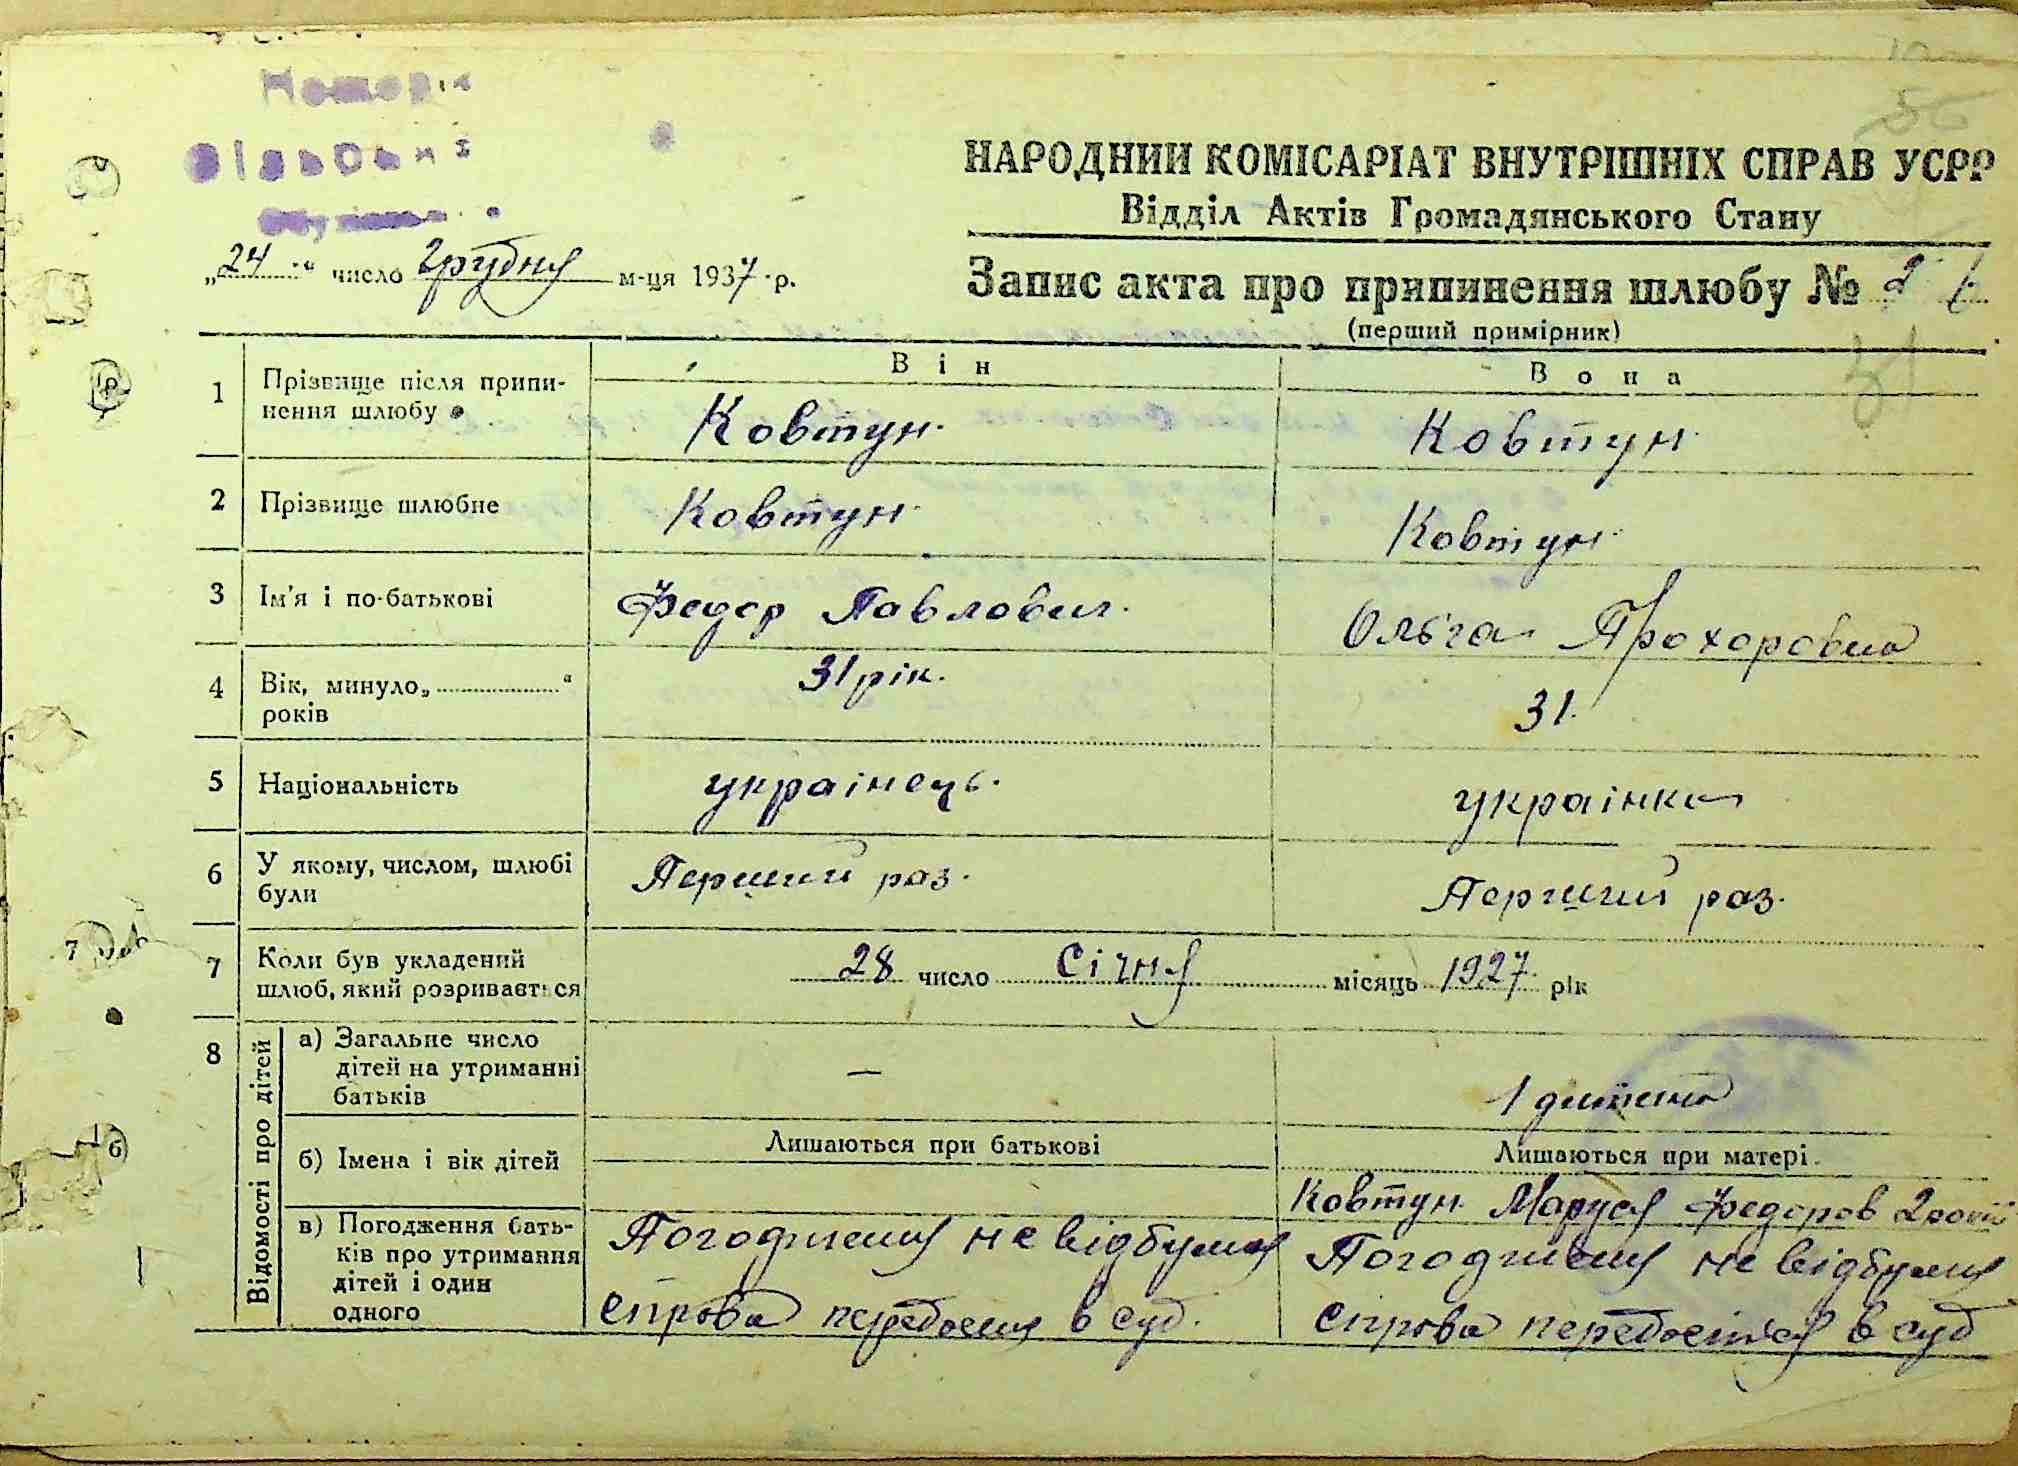 НАРОДНИЙ КОМІСАРІАТ ВНУТРІШНІХ СПРАВ УСРР
Відділ Актів Громадянського Стану
„24“ число Грудня м-ця 1937 р.
Запис акта про припинення шлюбу №
(перший примірник)
Він Вона
1 Прізвище після припи-
нення шлюбу
Ковтун. Ковтун.
2 Прізвище шлюбне Ковтун. Ковтун.
3 Ім'я і по-батькові Федор Павлович. Ольга Прохоровна
4 Вік, минуло „ “
років
31 рік. 31.
5 Національність українець. українка
6 У якому, числом, шлюбі
були
Перший раз. Перший раз.
7 Коли був укладений
шлюб, який розривається
28 число Січня місяць 1927 рік
8 Відомості про дітей
а) Загальне число
дітей на утриманні
батьків
— 1 дитина
б) Імена і вік дітей
Лишаються при батькові Лишаються при матері
Ковтун Маруся Федоров 2 роки
в) Погодження бать-
ків про утримання
дітей і один
одного
Погодження не відбулися Погодження не відбулися
справа в суд. справа в суд